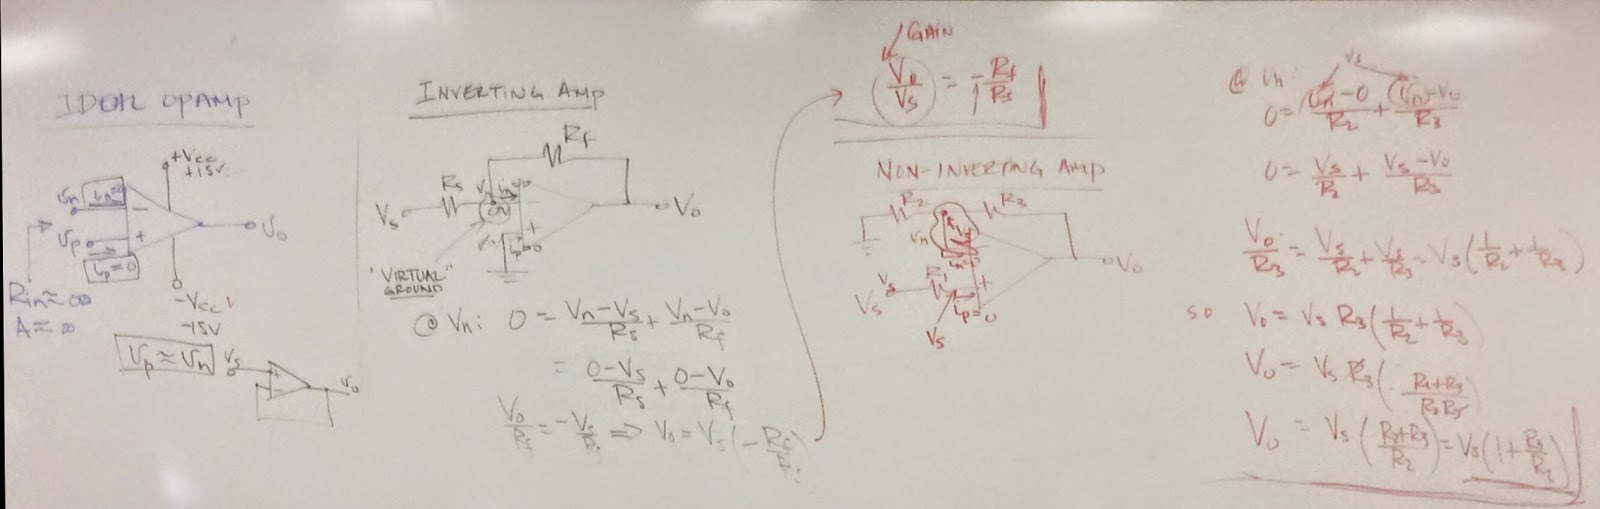 IDEAL OPAMP
+Vcc
+15V
Vn
in=0
-
Vp
+
ip=0
Vo
Rin≈∞
A≈∞
-Vcc
-15V
Vp≈Vn
Vs
+
-
Vo
INVERTING AMP
Rf
Rs
Vn
in=0
-
Vs
0V
Vo
+
ip=0
"VIRTUAL"
GROUND
@ Vn: 0 = Vn-Vs/Rs + Vn-Vo/Rf
= 0-Vs/Rs + 0-Vo/Rf
Vo/Rf = -Vs/Rs ⇒ Vo = Vs(-Rf/Rs)
GAIN
Vo/Vs = -Rf/Rs
NON-INVERTING AMP
R2
R3
Vn
-
Vs
R1
+
Vs
Vo
ip=0
Vs
Vs
@ Vn:
0 = Vn-0/R2 + Vn-Vo/R3
0 = Vs/R2 + Vs-Vo/R3
Vo/R3 = Vs/R2 + Vs/R3 = Vs(1/R2 + 1/R3)
so Vo = Vs R3(1/R2 + 1/R3)
Vo = Vs R3(R2+R3/R2R3)
Vo = Vs(R2+R3/R2) = Vs(1+R3/R2)